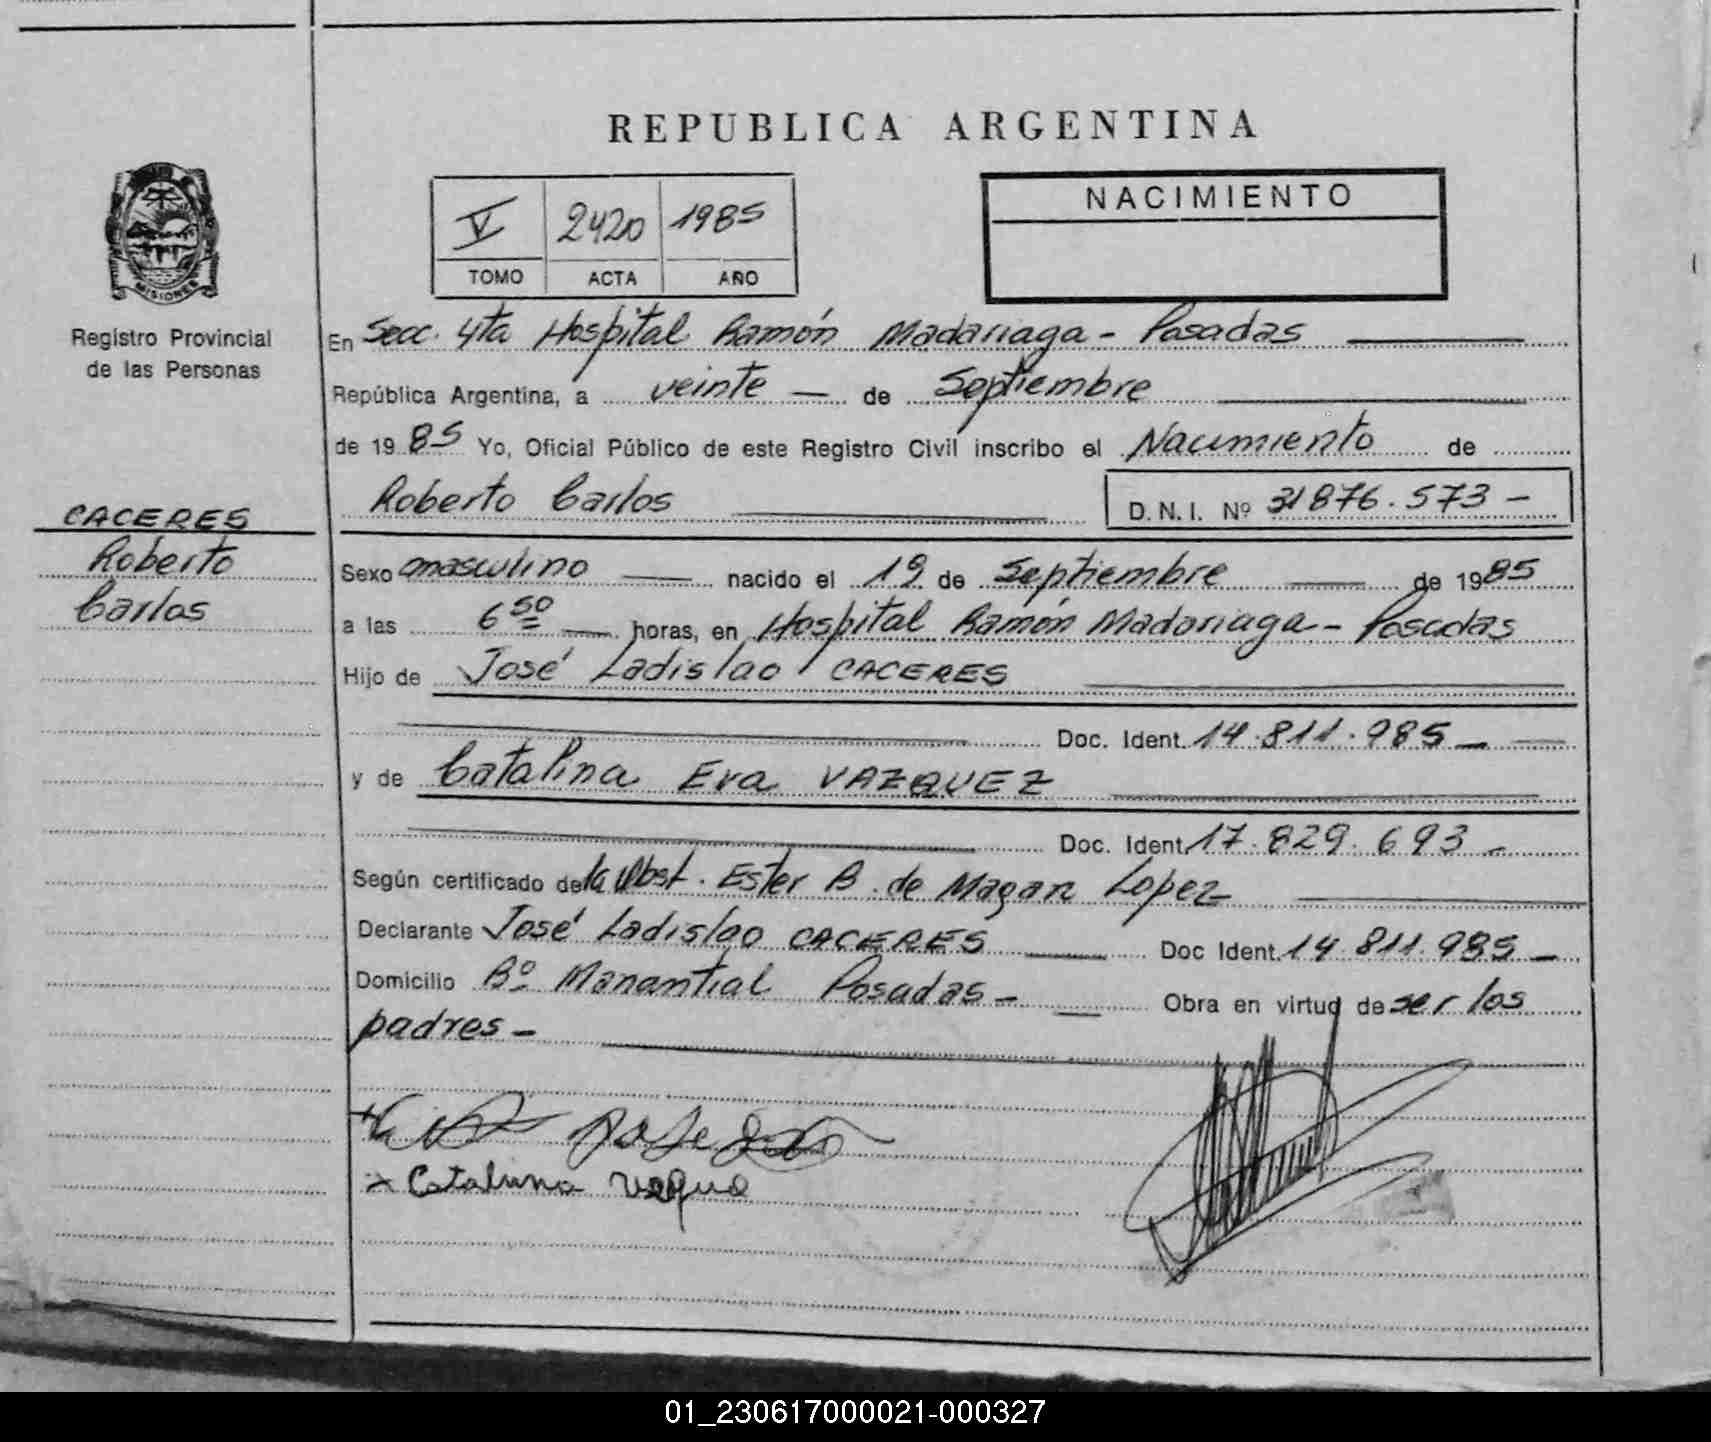 REPUBLICA ARGENTINA
NACIMIENTO
V 2420 1985
TOMO ACTA AÑO
MISIONES
Registro Provincial
de las Personas
En Secc. 4ta Hospital Ramón Madariaga - Posadas
República Argentina, a veinte — de Septiembre
de 1985 Yo, Oficial Público de este Registro Civil inscribo el Nacimiento de
Roberto Carlos D.N.I. Nº 31876.573 -
CACERES
Roberto
Carlos
Sexo masculino — nacido el 19 de Septiembre — de 1985
a las 6 50 — horas, en Hospital Ramón Madariaga - Posadas
Hijo de José Ladislao CACERES
Doc. Ident. 14.811.985 -
y de Catalina Eva VAZQUEZ
Doc. Ident. 17.829.693 -
Según certificado de la Obst. Ester B. de Magan Lopez
Declarante José Ladislao CACERES — Doc Ident. 14.811.985 -
Domicilio Bº Manantial Posadas - Obra en virtud de ser los
padres -
x Cataluna
01_230617000021-000327